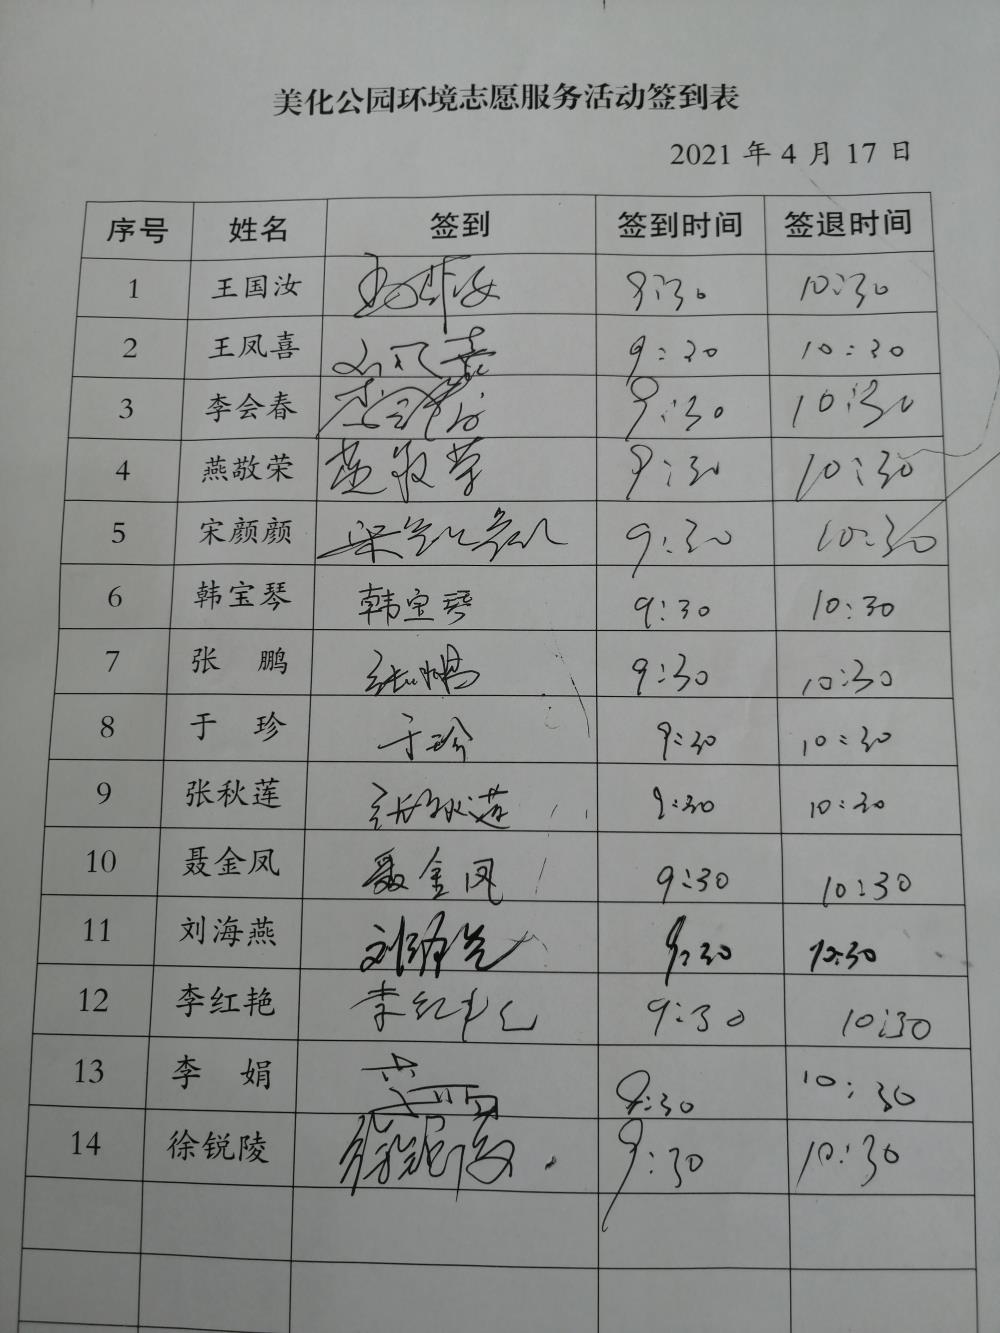 美化公园环境志愿服务活动签到表
2021 年 4 月 17 日
序号 姓名 签到 签到时间 签退时间
1 王国汝 9:30 10:30
2 王凤喜 9:30 10:30
3 李会春 9:30 10:30
4 燕敬荣 燕敬荣 9:30 10:30
5 宋颜颜 9:30 10:30
6 韩宝琴 韩宝琴 9:30 10:30
7 张 鹏 张鹏 9:30 10:30
8 于 珍 于珍 9:30 10:30
9 张秋莲 张秋莲 9:30 10:30
10 聂金凤 聂金凤 9:30 10:30
11 刘海燕 9:30 10:30
12 李红艳 李红艳 9:30 10:30
13 李 娟 9:30 10:30
14 徐锐陵 徐锐陵 9:30 10:30